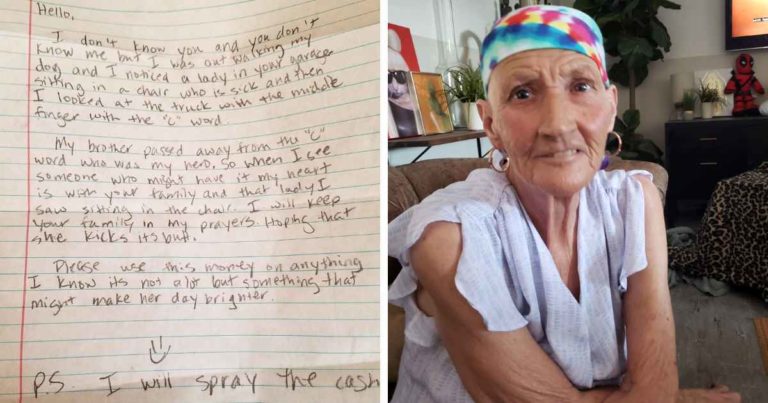 Hello,
I don't know you and you don't
know me but I was out walking my
dog and I noticed a lady in your garage
sitting in a chair who is sick and then
I looked at the truck with the middle
finger with the "C" word.
My brother passed away from the "C"
word who was my hero, so when I see
someone who might have it my heart
is with your family and that lady I
saw sitting in the chair. I will keep
your family in my prayers. Hoping that
she kicks its but.
Please use this money on anything
I know its not a lot but something that
might make her day brighter.
P.S. I will spray the cash